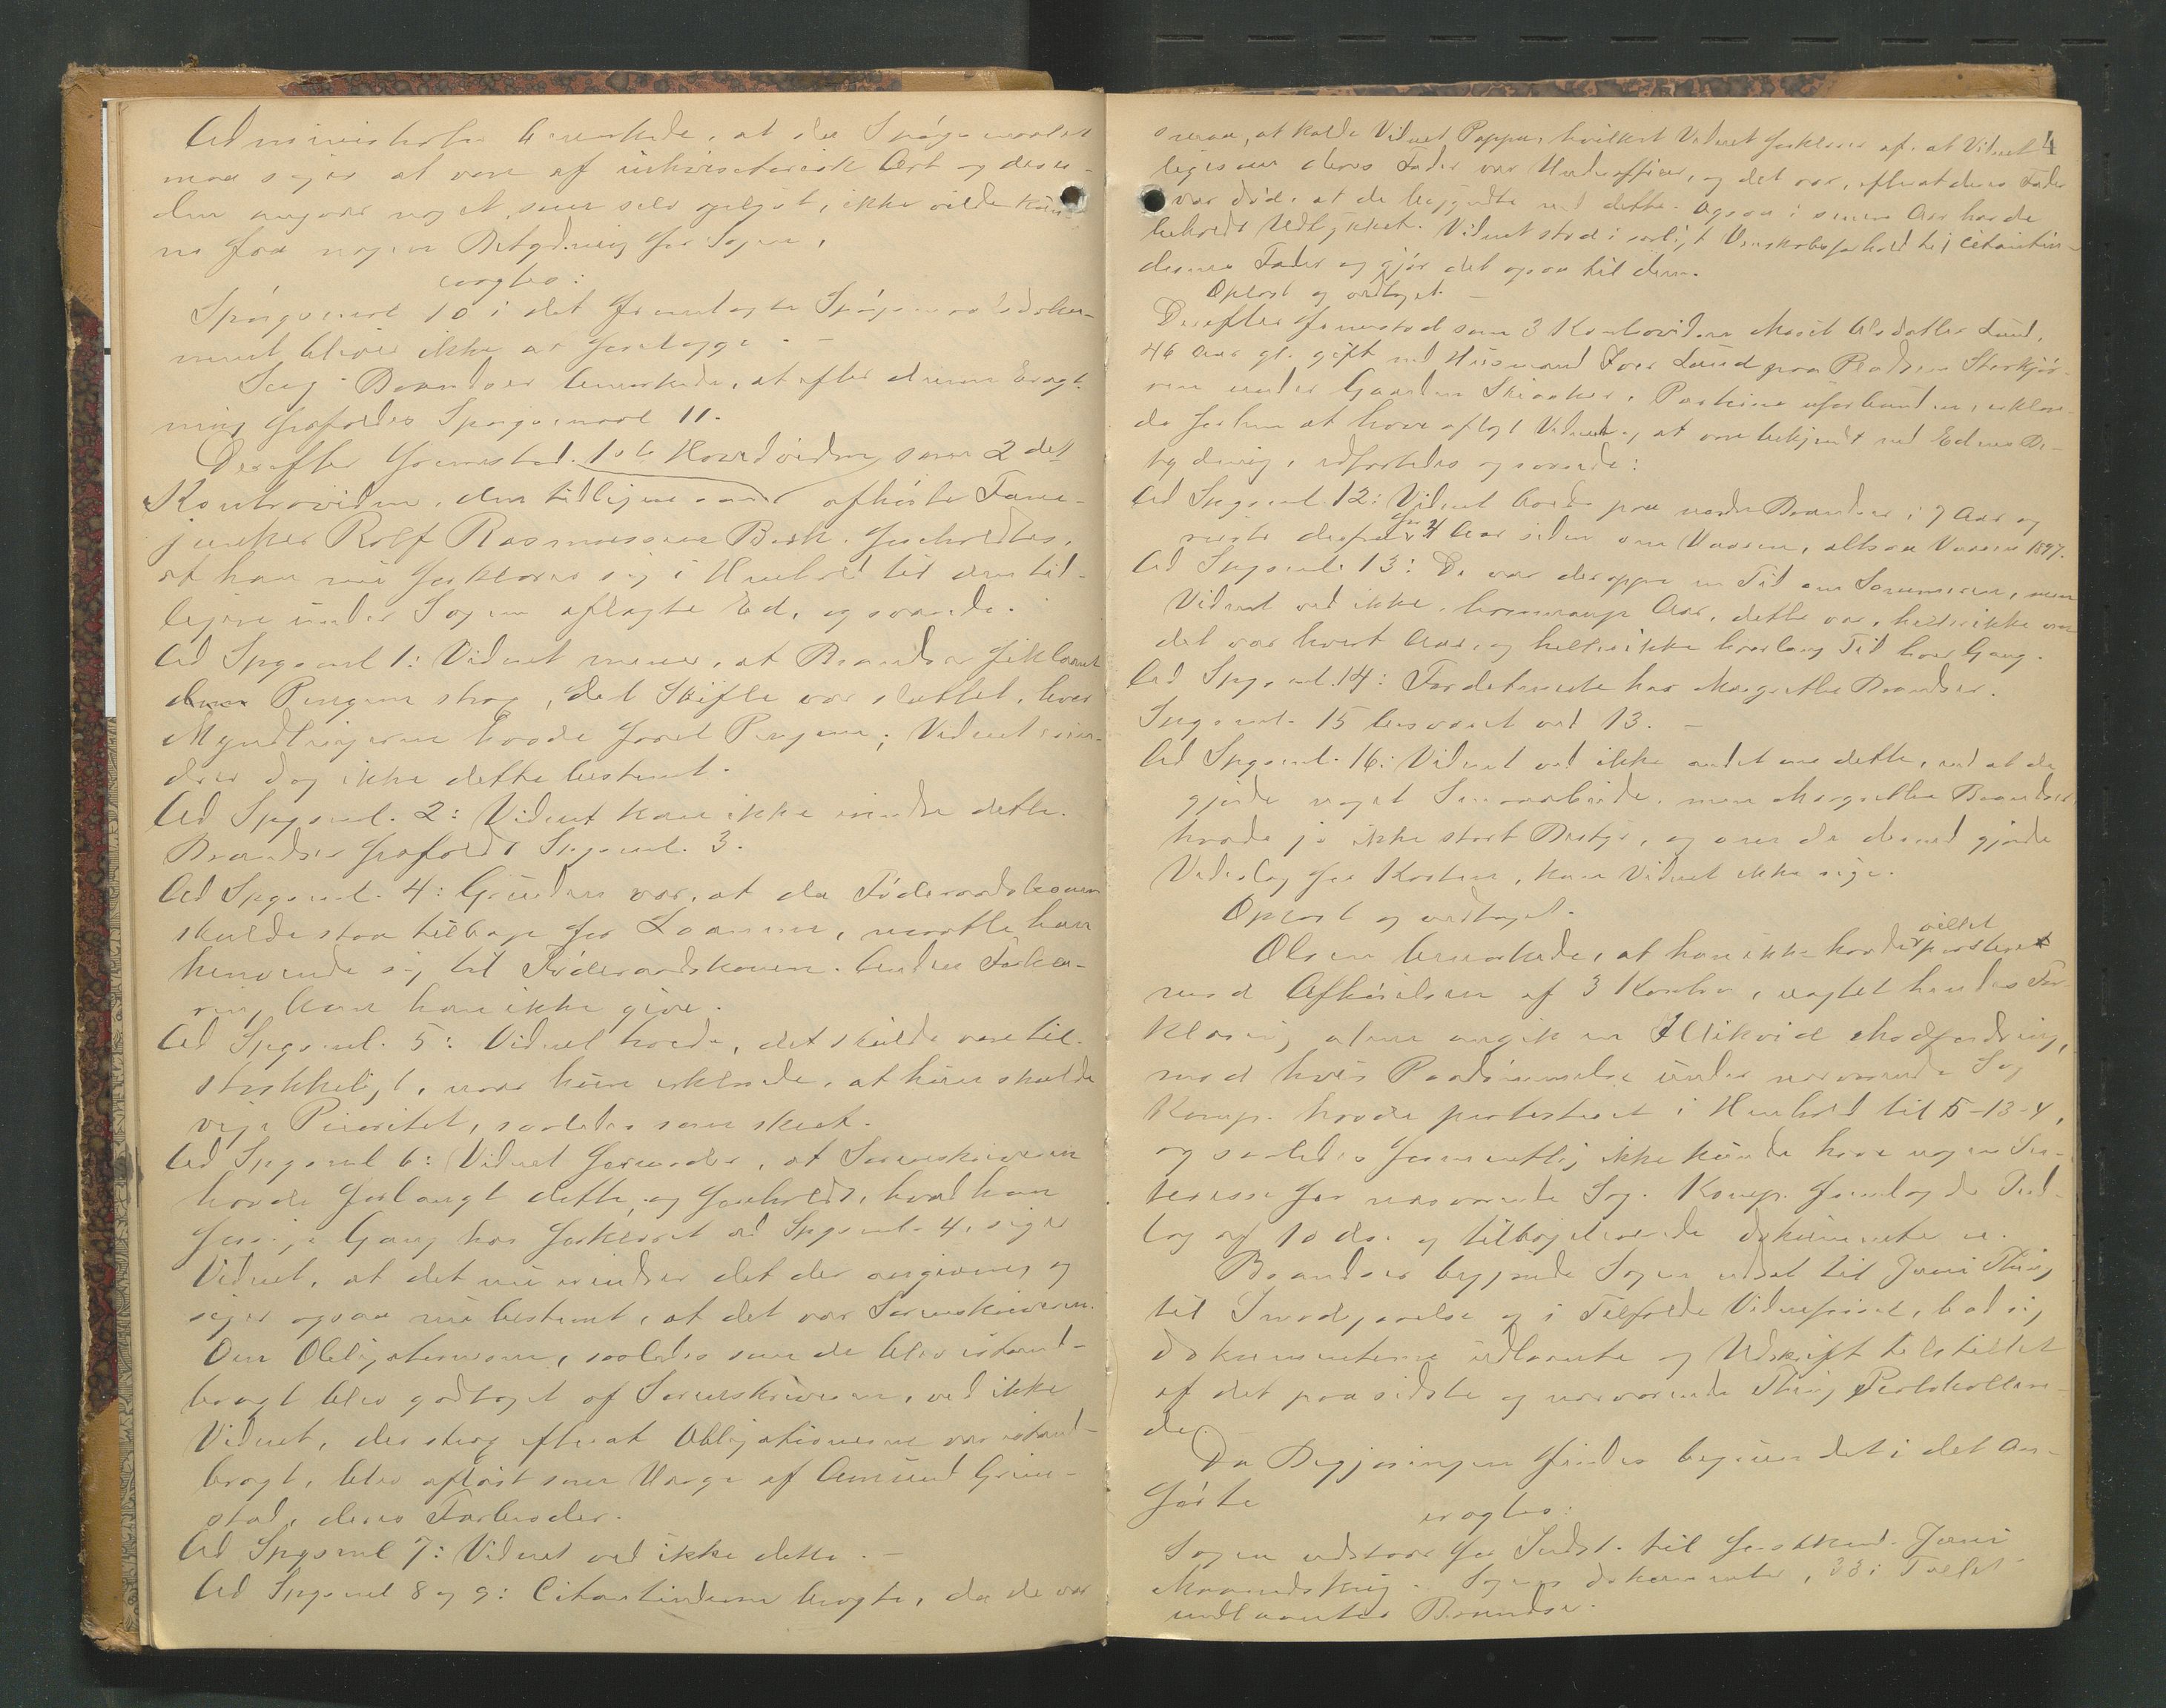 Administrator bemærkede, at det Spørgsmaalet
maa siges at være af inkvisitorisk Art og desu-
den angaar noget, som selv oplyst, ikke vilde kun-
ne faa nogen Betydning for Sagen,
eragtes:
Spørgsmaal 10 i det fremlagte Spørgsmaalsdoku-
ment bliver ikke at forelægge. —
Sagf. Brandser bemærkede, at efter denne Eragt-
ning frafaldes Spørgsmaal 11.
Derefter fremstod 1ste Hovedvidne som 2det
Kontravidne, den tidligere afhørte Fane-
junker Rolf Rasmussen Bakk. foreholdtes,
at han nu forklarer sig i Henhold til den tid-
ligere under Sagen aflagte Ed, og svarede.
Ad Spgsml 1: Vidnet mener, at Brandser fik laant
Pengene strax, det Skifte var sluttet, hvor
Myndlingerne havde faaet Pengene; Vidnet erin-
drer dog ikke dette bestemt.
Ad Spgsml. 2: Vidnet kan ikke erindre dette.
Brandser frafaldt Spgsml. 3.
Ad Spgsml. 4: Grunden var, at da Føderaadskonen
skulde staa tilbage for Laanene, maatte han
henvende sig til Føderaadskonen. Anden Forkla-
ring kan han ikke give.
Ad Spgsml. 5: Vidnet troede, det skulde være til-
strækkeligt, naar hun erklærede, at hun skulde
vige Prioritet, saaledes som skeet.
Ad Spgsml 6: Vidnet formoder, at Sorenskriveren
havde forlangt dette, og foreholdt, hvad han
forrige Gang har forklaret ad Spgsml. 4, siger
Vidnet, at det nu erindrer det der angivne, og
siger ogsaa nu bestemt, at det var Sorenskriveren.
Om Obligationerne, saaledes som de blev istand-
bragt blev godtaget af Sorenskriveren, ved ikke
Vidnet, der strax efterat Obligationerne var istand-
bragt, blev afløst som Værge af Amund Grim-
stad, deres Farbroder.
Ad Spgsml 7: Vidnet ved ikke dette. —
Ad Spgsml 8 og 9: Citantinderne brugte, da de var
4
smaa, at kalde Vidnet Pappa, hvilket Vidnet forklarer af, at Vidnet
ligesom deres Fader var Underofficer, og det var, efterat deres Fader
var død, at de begyndte med dette. Ogsaa i senere Aar har de
beholdt Udtrykket. Vidnet stod i særligt Venskabsforhold til Citantin-
dernes Fader og gjør det ogsaa til dem.
Oplæst og vedtaget. —
Derefter fremstod som 3 Kontravidne Marit Olsdatter Lund,
46 Aar gl. gift med Husmand Iver Lund paa Pladsen Storkjær-
ren under Gaarden Skiaker, Parterne uforbunden, erklære-
de forhen at have aflagt Vidneed og at være bekjendt med Edens Be-
tydning, edfæstedes og svarede:
Ad Spgsml. 12: Vidnet boede paa nordre Brandser i 7 Aar og
reiste derfra for 4 Aar siden om Vaaren, altsaa Vaaren 1897.
Ad Spgsml. 13: De var deroppe en Tid om Sommeren, men
Vidnet ved ikke, hvormange Aar, dette var, heller ikke om
det var hvert Aar, og heller ikke hvorlang Tid hver Gang.
Ad Spgsml. 14: For det meste hos Margrethe Brandser.
Spgsml. 15 besvaret ved 13. —
Ad Spgsml. 16: Vidnet ved ikke andet om dette, end at de
gjorde noget Smaaarbeide, men Margrethe Brandser
havde jo ikke stort Bestyr, og om de dermed gjorde
Vederlag for Kosten, kan Vidnet ikke sige.
Oplæst og vedtaget.
Olsen bemærkede, at han ikke havde villet protestere
mod Afhørelsen af 3 Kontra, uagtet hendes For-
klaring alene angik en Illikvid Modfordring,
mod hvis Paadømmelse under nærværende Sag
Komp. havde protesteret i Henhold til 5-13-4,
og saaledes formentlig ikke kunde have nogen In-
teresse for nærværende Sag. Komp. fremlagde Ind-
læg af 10 ds. og tilhørende dokumenter.
Brandser begjærede Sagen udsat til Juni Thing
til Imødegaaelse og i Tilfælde Vidneførsel, bad sig
dokumenterne udlaante og Udskrift tilstillet
af det paa sidste og nærværende Thing Protokollere-
de.
Da Begjæringen findes begrundet i det An-
førte
eragtes:
Sagen udstaar for Indst. til førstkmd. Juni
Maanedsthing. Sagens dokumenter, 33 i Tallet
udlaantes Brandser.